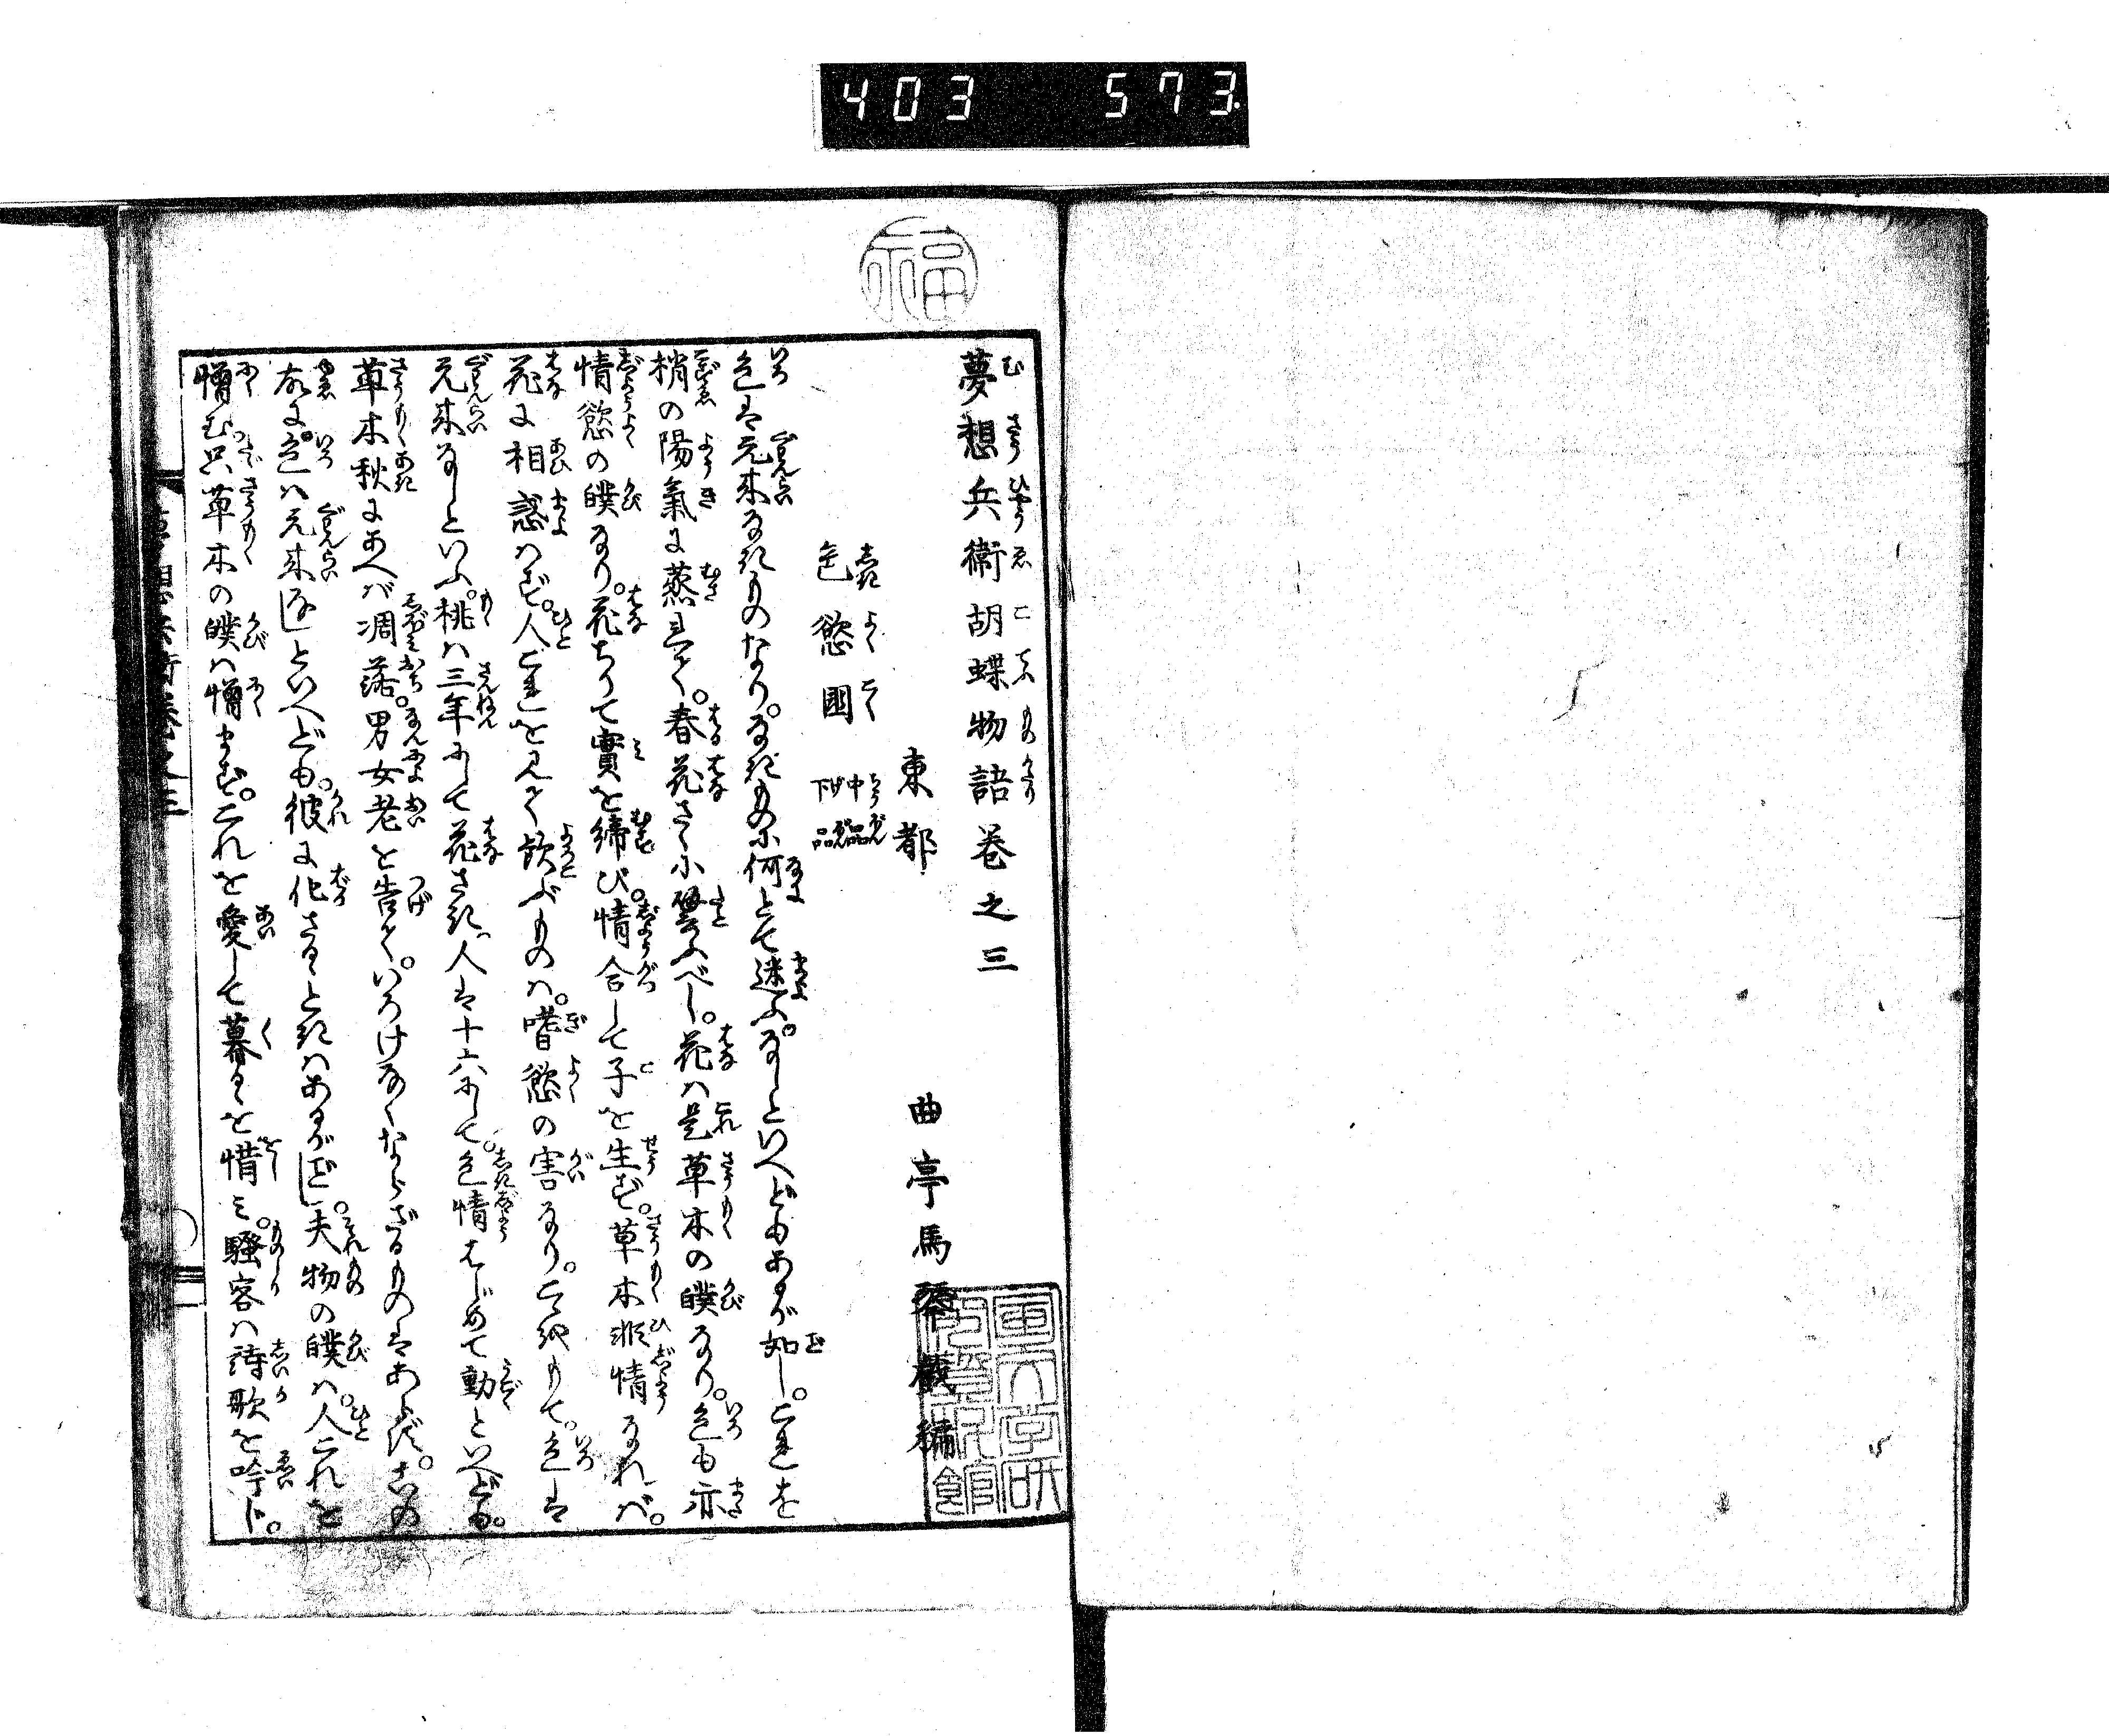 403 573
福
夢想兵衛胡蝶物語巻之三
東都 曲亭馬琴戲編
色慾國 中品 下品
色は元来なきものなり。なきものに何とて迷ふ。なしといへどもあるが如し。これを
梢の陽氣に蒸れて。春花さくに譬ふべし。花は是草木の㿺なり。色も亦
情慾の㿺なり。花ちりて實を締び。情合して子を生ず。草木非情なれば。
花に相惑はず。人これを見て歓ぶものは。嗜慾の害なり。これをもて。色は
元来なしといふ。桃は三年にして花さき。人は十六にして。色情はじめて動といへども。
草木秋にあへば凋落。男女老を告て。いろけなくならざるものはあらず。この
故に。色は元来なしといへども。彼に化さるゝときはあるがごとし。夫物の㿺は。人これを
憎む。只草木の㿺は憎まず。これを愛して暮るゝを惜み。騒客は詩歌を吟じ。